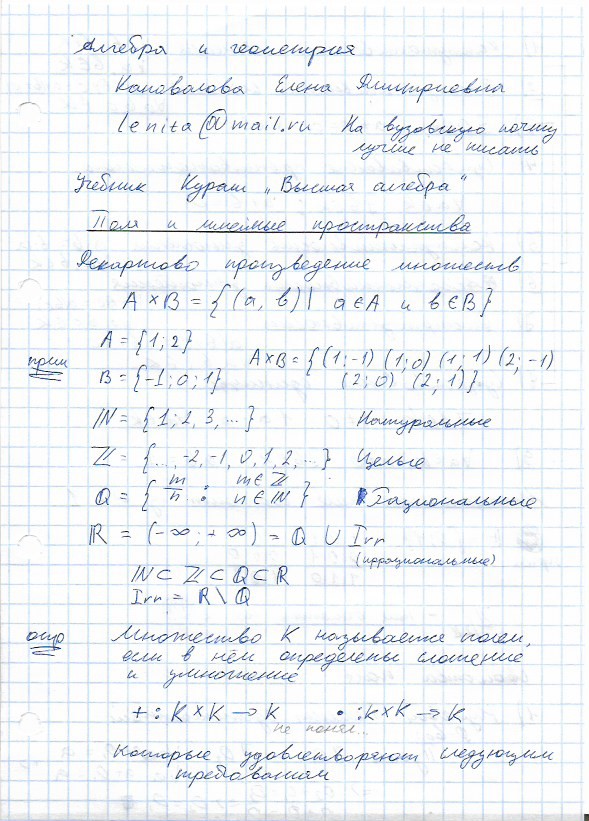 Алгебра и геометрия
Коновалова Елена Дмитриевна
lenita@mail.ru На вузовскую почту
лучше не писать
Учебник Курош „Высшая алгебра"
Поля и линейные пространства
Декартово произведение множеств
A × B = {(a, b) | a ∈ A и b ∈ B}
A = {1; 2}
прим A×B = {(1; -1) (1; 0) (1; 1) (2; -1)
B = {-1; 0; 1} (2; 0) (2; 1)}
ℕ = {1; 2, 3, ...} Натуральные
ℤ = {..., -2, -1, 0, 1, 2, ...} Целые
ℚ = { m/n : m ∈ ℤ n ∈ ℕ } Рациональные
ℝ = (-∞; +∞) = ℚ ∪ Irr
(иррациональные)
ℕ ⊂ ℤ ⊂ ℚ ⊂ ℝ
Irr = ℝ \ ℚ
опр Множество K называется полем,
если в нём определены сложение
и умножение
+ : K × K → K • : K × K → K
не понял..
Которые удовлетворяют следующим
требованиям